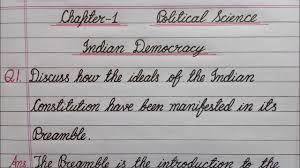 Chapter-1 Political Science
Indian Democracy
Q.1. Discuss how the ideals of the Indian
Constitution have been manifested in its
Preamble.
Ans The Preamble is the introduction to the